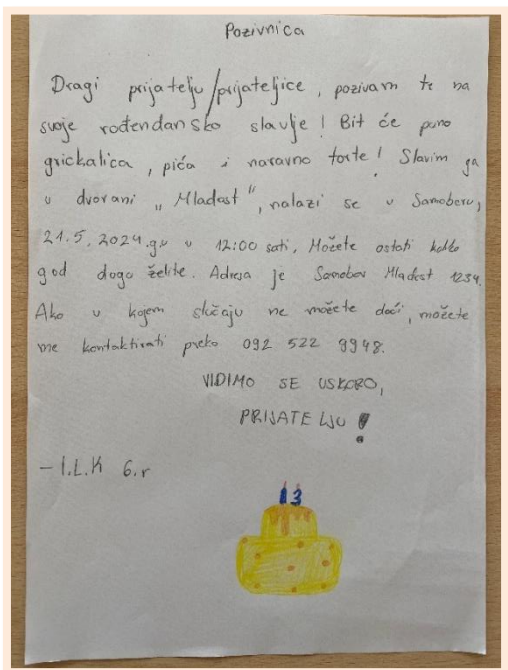 Pozivnica
Dragi prijatelju/prijateljice, pozivam te na
svoje rođendansko slavlje! Bit će puno
grickalica, pića i naravno torte! Slavim ga
u dvorani „Mladost", nalazi se u Samoboru,
21.5.2024.g. u 12:00 sati. Možete ostati koliko
god dugo želite. Adresa je Samobor Mladost 1234.
Ako u kojem slučaju ne možete doći, možete
me kontaktirati preko 092 522 9948.
VIDIMO SE USKORO,
PRIJATELJU!
- I.L.K 6.r
13